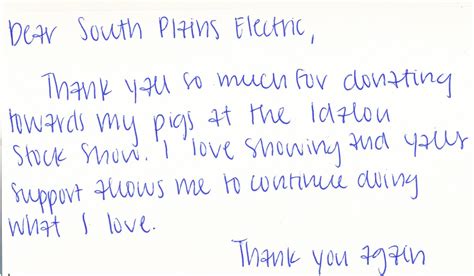 Dear South Plains Electric,
Thank you so much for donating
towards my pigs at the Idalou
Stock Show. I love showing and your
support allows me to continue doing
what I love.
Thank you again